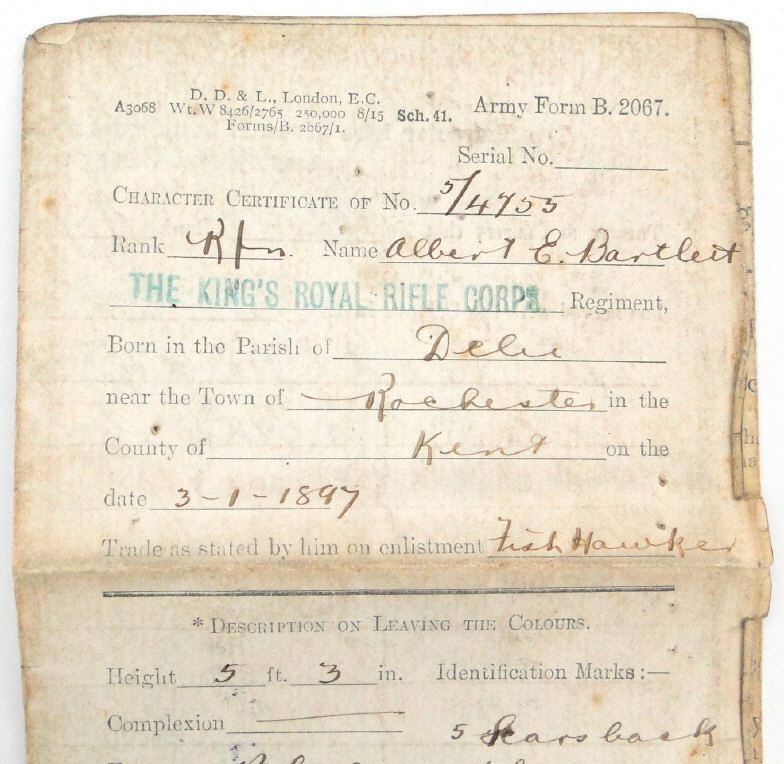 D. D. & L., London, E.C.
A3068 Wt. W 8426/2765 250,000 8/15 Sch. 41. Army Form B. 2067.
Forms/B. 2067/1.
Serial No.
CHARACTER CERTIFICATE OF No. 5/4755
Rank Rfn. Name Albert E. Bartlett
THE KING'S ROYAL RIFLE CORPS Regiment,
Born in the Parish of
near the Town of Rochester in the
County of Kent on the
date 3-1-1897
Trade as stated by him on enlistment Fish Hawker
* DESCRIPTION ON LEAVING THE COLOURS.
Height 5 ft. 3 in. Identification Marks:—
Complexion
5 Scars back